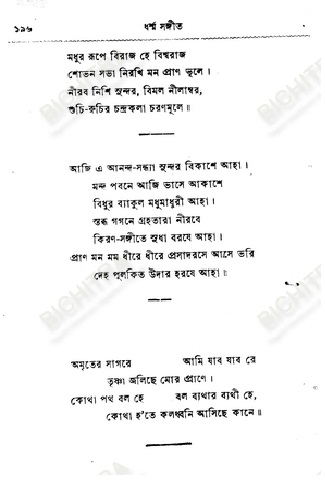 ১৯৬ ধর্ম্ম সঙ্গীত
মধুর রূপে বিরাজ হে বিশ্বরাজ
শোভন সভা নিরখি মন প্রাণ ভুলে।
নীরব নিশি সুন্দর, বিমল নীলাম্বর,
শুচি-রুচির চন্দ্রকলা চরণমূলে॥
আজি এ আনন্দ-সন্ধ্যা সুন্দর বিকাশে আহা।
মন্দ পবনে আজি ভাসে আকাশে
বিধুর ব্যাকুল মধুমাধুরী আহা।
স্তব্ধ গগনে গ্রহতারা নীরবে
কিরণ-সঙ্গীতে সুধা বরষে আহা।
প্রাণ মন মম ধীরে ধীরে প্রসাদরসে আসে ভরি
দেহ পুলকিত উদার হরষে আহা॥
অমৃতের সাগরে আমি যাব যাব রে
তৃষ্ণা জলিছে মোর প্রাণে।
কোথা পথ বল হে বল ব্যথার ব্যথী হে,
কোথা হ'তে কলধ্বনি আসিছে কানে॥
BICHITRA